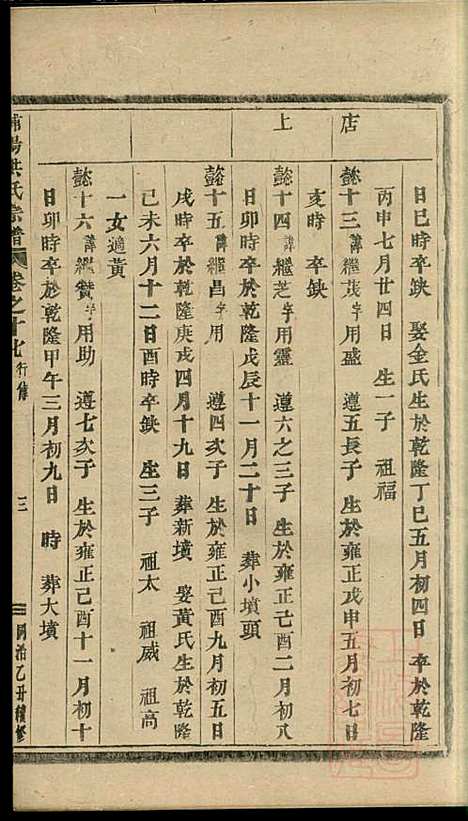 店
上
日巳時卒缺 娶金氏生於乾隆丁巳五月初四日 卒於乾隆
丙申七月廿四日 生一子 祖福
懿十三諱繼茂字用盛 遵五長子 生於雍正戊申五月初七日
亥時 卒缺
懿十四諱繼芝字用靈 遵六之三子 生於雍正己酉二月初八
日卯時 卒於乾隆戊辰十一月二十日 葬小墳頭
懿十五諱繼昌字用 遵四次子 生於雍正己酉九月初五日
戌時卒於乾隆庚戌四月十九日 葬新墳 娶黃氏生於乾隆
己未六月十二日酉時卒缺 生三子 祖太 祖威 祖高
一女適黃
懿十六諱繼贊字用助 遵七次子 生於雍正己酉十一月初十
日卯時卒於乾隆甲午三月初九日 時 葬大墳
浦陽洪氏宗譜 卷之十七 行傳 三 同治乙丑續修